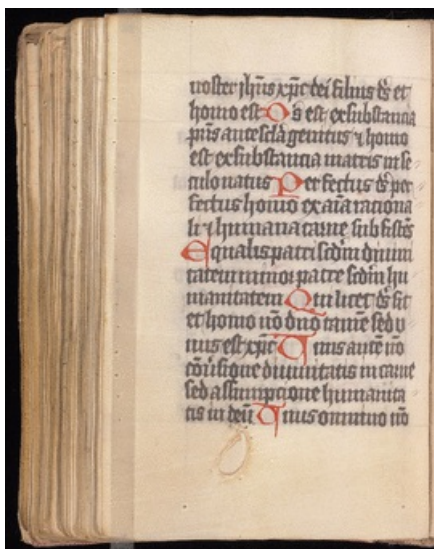 noster ihūs xp̄c dei filius d̄s et
homo est D̄s est ex substancia
pr̄is ante sc̄la genitus ⁊ homo
est ex substancia matris in se
culo natus Perfectus d̄s per
fectus homo ex aīa raciona
li ⁊ humana carne subsistēs
Equalis patri scd̄m diuini
tatem minor patre scd̄m hu
manitatem Qui licet d̄s sit
et homo nō duo tamē sed v
nus est xp̄c Unus autē nō
cōūsione diuinitatis in carne
sed assumpcione humanita
tis in deū Unus omnino nō